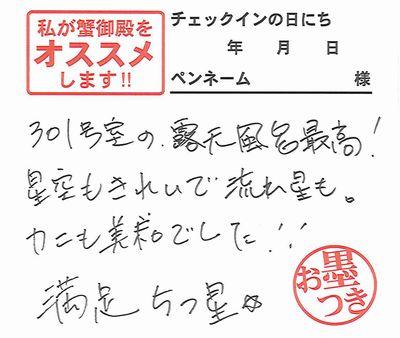 私が蟹御殿を
オススメ
します!!
チェックインの日にち
年 月 日
ペンネーム 様
301号室の、露天風呂最高!
星空もきれいで流れ星も。
カニも美味でした!!!
満足 5つ星☆
お墨つき